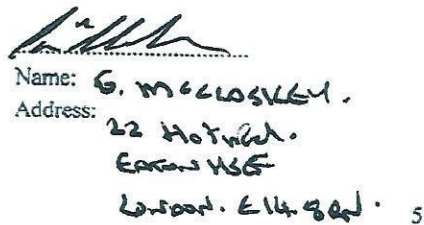 Name: G. MCCLOSKEY.
Address:
22
EATON HSE
LONDON. E14.
5